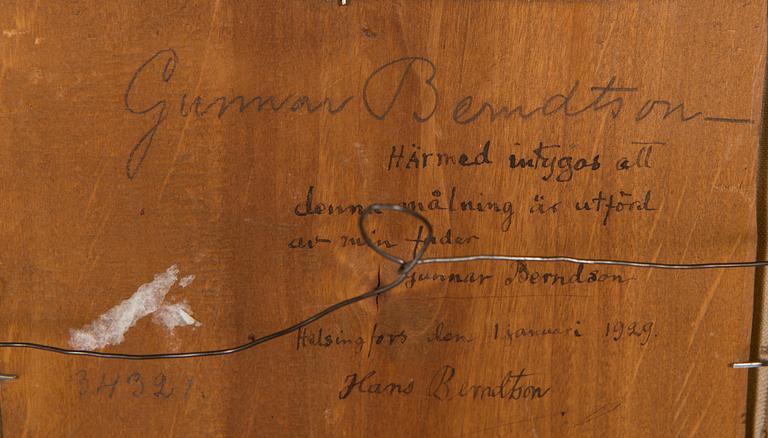 Gunnar Berndtson
Härmed intygas att
denna målning är utförd
av min fader
Gunnar Berndtson
Helsingfors den 1 januari 1929.
Hans Berndtson
34321.